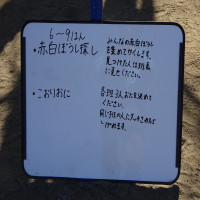 6～9はん
・赤白ぼうし探し
みんなの赤白ぼうし
を集めてかくします。
見つけた人は班長
に見せてください。
・こおりおに
各班3人おにを決めて
ください。
同じ班の人にタッチされたら